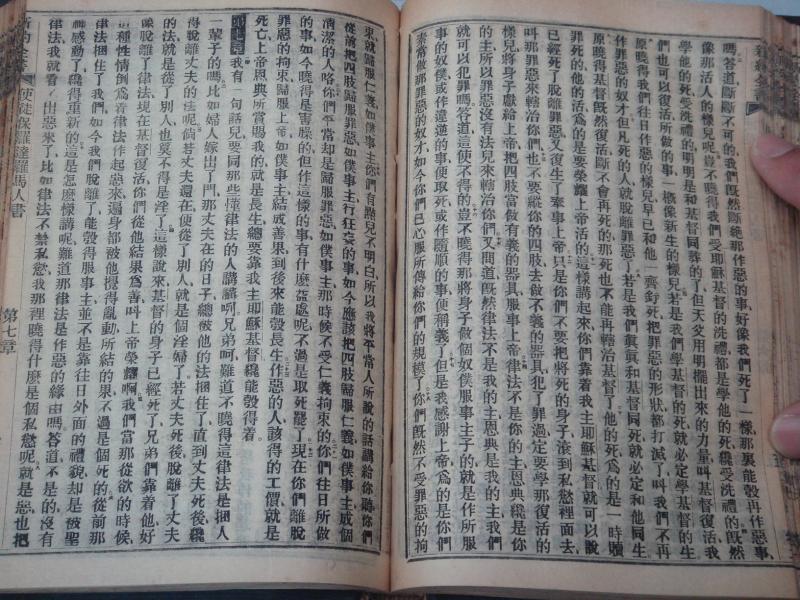 新約全書
嗎答道斷斷不可的我們既然斷絕那作惡的事好像我們死了一樣那裏能彀再作惡事
呢豈不曉得我們受耶穌基督的洗禮都是學他的死纔受洗禮的既然
學他的死受洗禮的明明是和基督同葬的了但天父用明擺出來的力量叫基督復活我
像那活人的樣兒
們也可以復活所做的事一概像新生的樣兒若是我們學基督的死就必定學基督的生
原曉得我們往日作惡的樣兒早已和他一齊釘死把罪惡的形狀都打滅了叫我們不再
作罪惡的奴才但凡死的人就脫離罪惡了若是我們眞眞和基督同死就必定和他同生
原曉得基督既然復活斷不會再死的那死也不能再轄治基督了他的死爲的是一時贖
罪死的他的活爲的是要榮耀上帝活的這樣講起來你們靠着我主耶穌基督就可以說
已經死了脫離罪惡又復生了奉事上帝只是你們不要把將死的身子滚到私慾裡面去
叫那罪惡來轄治你們也不要縱你的四肢去做不義的器具犯了罪過定要學那復活的
樣兒將身子獻給上帝把四肢當做有義的器具服事上帝律法不是你的主恩典纔是你
的主所以罪惡沒有法兒來轄治你們又問道既然律法不是我的主恩典是我的主我們
就可以犯罪嗎答道這便不得的豈不曉得那將身子做個奴僕服事主子的就是作
事的奴僕或作違逆的事便取死或作隨順的事便稱義了但是我感謝上帝爲的是你們
素常做那罪惡的奴才如今你們已心服所傳給你們的規模了你們既然不受罪惡的拘
束就歸服仁義如僕事主你們有點兒不明白所以我將平常人所說的話講給你聽你們
從前把四肢歸服罪惡如僕事主行狂妄的事如今應該把四肢歸服仁義如僕事主成個
清潔的人咯你們平常却是歸服罪惡如僕事主那時候不受仁義拘束的你們往日所做
的事如今曉得是害臊的但作這樣的事有什麽益處呢不過是取死罷了現在你們離脫
罪惡的拘束歸服上帝如僕事主結成善果到後來能彀長生作惡的人該得的工價就是
死亡上帝恩典所賞賜我的就是長生總要靠我主耶穌基督纔能彀得着
第七章 我有一句話兒要同那些懂律法的人講講啊兄弟呵難道不曉得這律法是捆人
一輩子的嗎比如婦人嫁出了門那丈夫在的日子總被他的法捆住了直到丈夫死後纔
得脫離丈夫的法呢倘若丈夫還在便從了別人就是個淫婦了若丈夫死後脫離了丈夫
的法就是從了別人也算不得是淫了這樣說來基督的身子已經死了兄弟們靠着他好
像脫離了律法現在基督復活你們從他結果爲善叫上帝榮耀啊我們當那從欲的時候
這種性情倒爲着律法作起惡來遍身都被他攪得亂動所結的果不過是個死的從前那
律法捆住了我們如今我們脫離了能彀得服事主並不是靠往日外面的禮貌却是被聖
神感動了纔得重新的這是怎麽樣講呢難道那律法是作惡的緣由嗎答道不是的沒有
律法我就看不出惡來了比如律法不禁私慾我那裡曉得什麽是個私慾呢就是惡也把
新約全書
使徒保羅達羅馬人書
第七章